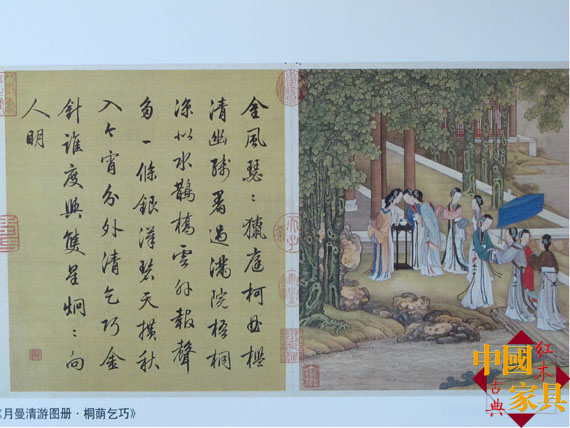 金風瑟〻獵庭柯曲檻
清幽殘暑過滿院梧桐
涼似水鵲橋雲外報聲
多一條銀漢碧天橫秋
入今宵分外清乞巧金
針誰度與雙星炯〻向
人明
《月曼清游图册·桐荫乞巧》
中國
古典
紅木
家具